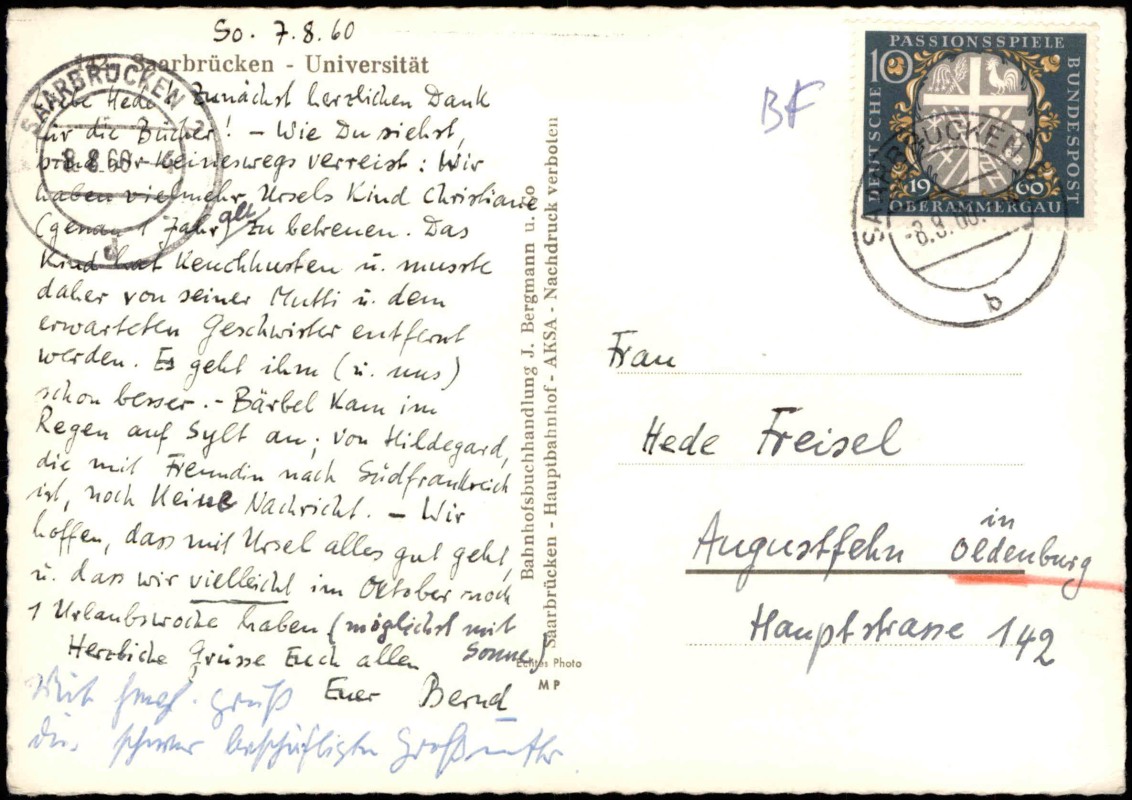 So. 7.8.60
142 Saarbrücken - Universität
Liebe Hede! Zunächst herzlichen Dank
für die Bücher! - Wie Du siehst,
sind wir keineswegs verreist: Wir
haben vielmehr Ursels Kind Christiane
(genau 1 Jahr alt) zu betreuen. Das
Kind hat Keuchhusten u. musste
daher von seiner Mutti u. dem
erwarteten Geschwister entfernt
werden. Es geht ihm (u. uns)
schon besser. - Bärbel kam im
Regen auf Sylt an; von Hildegard,
die mit Freundin nach Südfrankreich
ist, noch keine Nachricht. - Wir
hoffen, dass mit Ursel alles gut geht,
u. dass wir vielleicht im Oktober noch
1 Urlaubswoche haben (möglichst mit
Sonne)
Herzliche Grüsse Euch allen
Euer Bernd
Mit herzl. Gruß
die schwer beschäftigte Großmutter
Bahnhofsbuchhandlung J. Bergmann u. Co
Saarbrücken - Hauptbahnhof - AKSA - Nachdruck verboten
Echtes Photo
MP
BF
PASSIONSSPIELE
10
DEUTSCHE
BUNDESPOST
1960
OBERAMMERGAU
SAARBRÜCKEN 2
8.8.60
d
SAARBRÜCKEN
-8.8.60.
b
Frau
Hede Freisel
Augustfehn in Oldenburg
Hauptstrasse 142